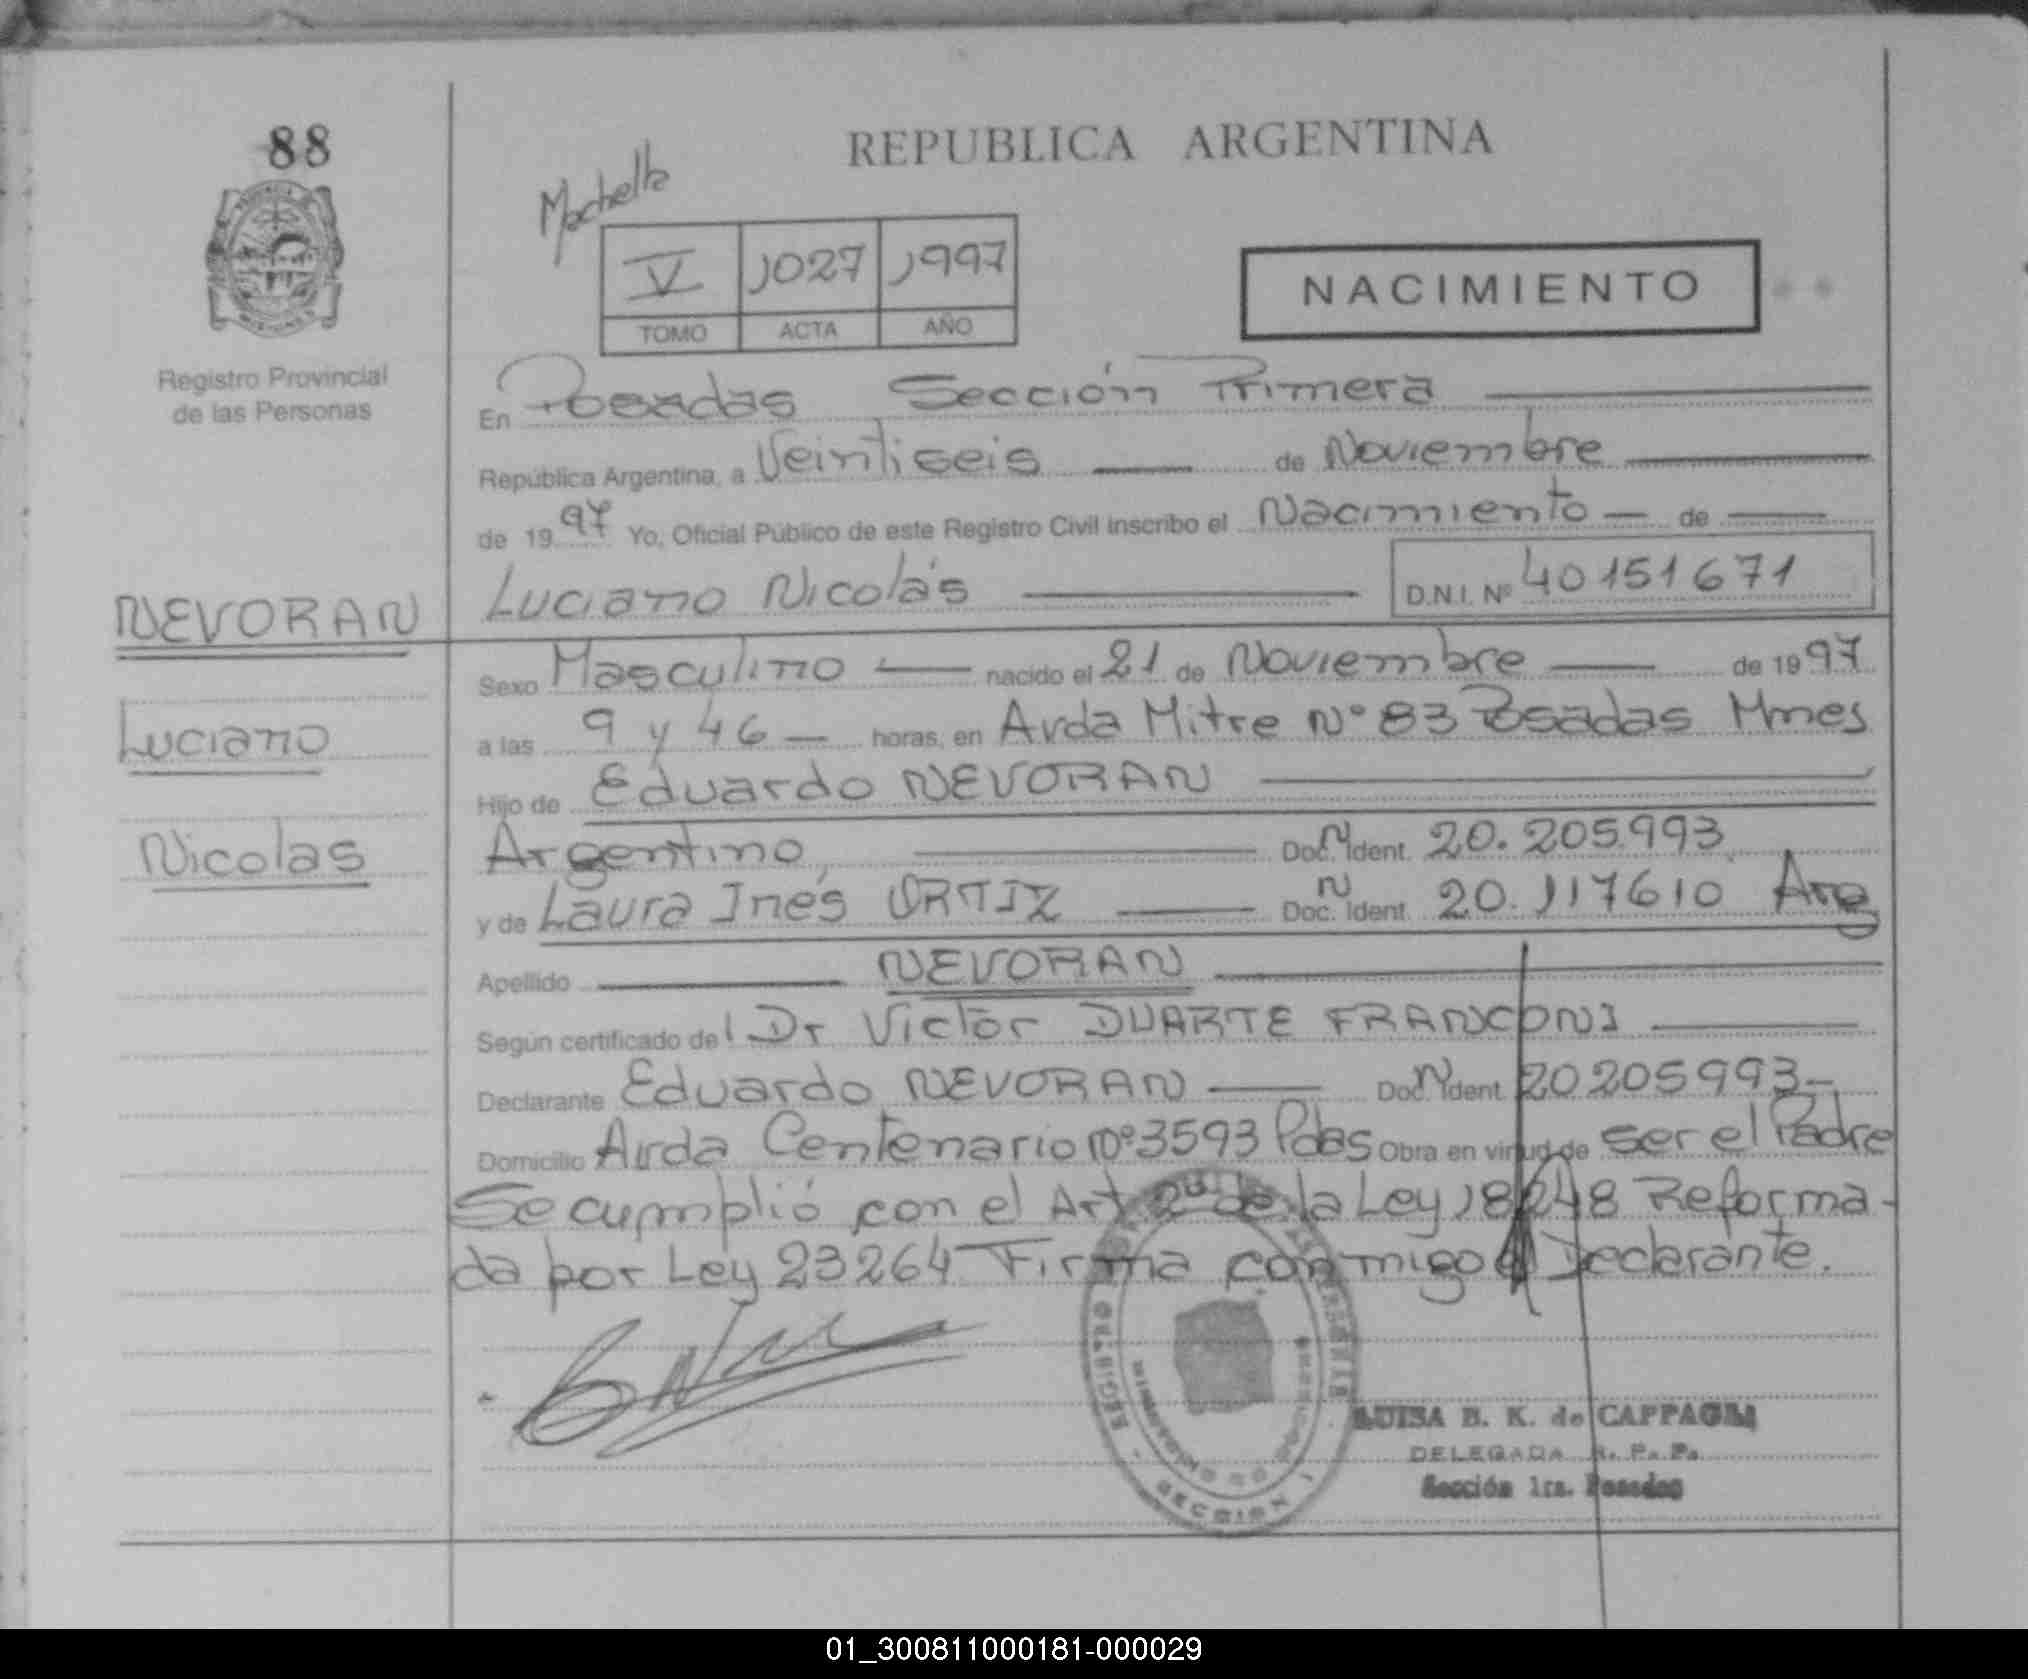 88
REPUBLICA ARGENTINA
V 1027 1997
TOMO ACTA AÑO
NACIMIENTO
Registro Provincial
de las Personas
En Posadas Sección Primera
República Argentina, a Veintiseis de Noviembre
de 1997 Yo, Oficial Público de este Registro Civil inscribo el Nacimiento de
Luciano Nicolás D.N.I. Nº 40151671
NEVORAN
Luciano
Nicolas
Sexo Masculino nacido el 21 de Noviembre de 1997
a las 9 y 46 horas, en Avda Mitre Nº 83 Posadas Mnes
Hijo de Eduardo NEVORAN
Argentino, Doc. Ident. 20.205993
y de Laura Inés ORTIZ Doc. Ident. 20.117610 Arg
Apellido NEVORAN
Según certificado del Dr Victor DUARTE FRANCONI
Declarante Eduardo NEVORAN Doc. Ident. 20205993
Domicilio Avda Centenario Nº 3593 Pdas Obra en virtud de ser el Padre
Se cumplió con el Art 2º de la Ley 18248 Reforma-
da por Ley 23264 Firma conmigo el Declarante.
LUISA B. K. de
DELEGADA R. P. P.
Sección 1ra. Posadas
SECCION 1
01_300811000181-000029